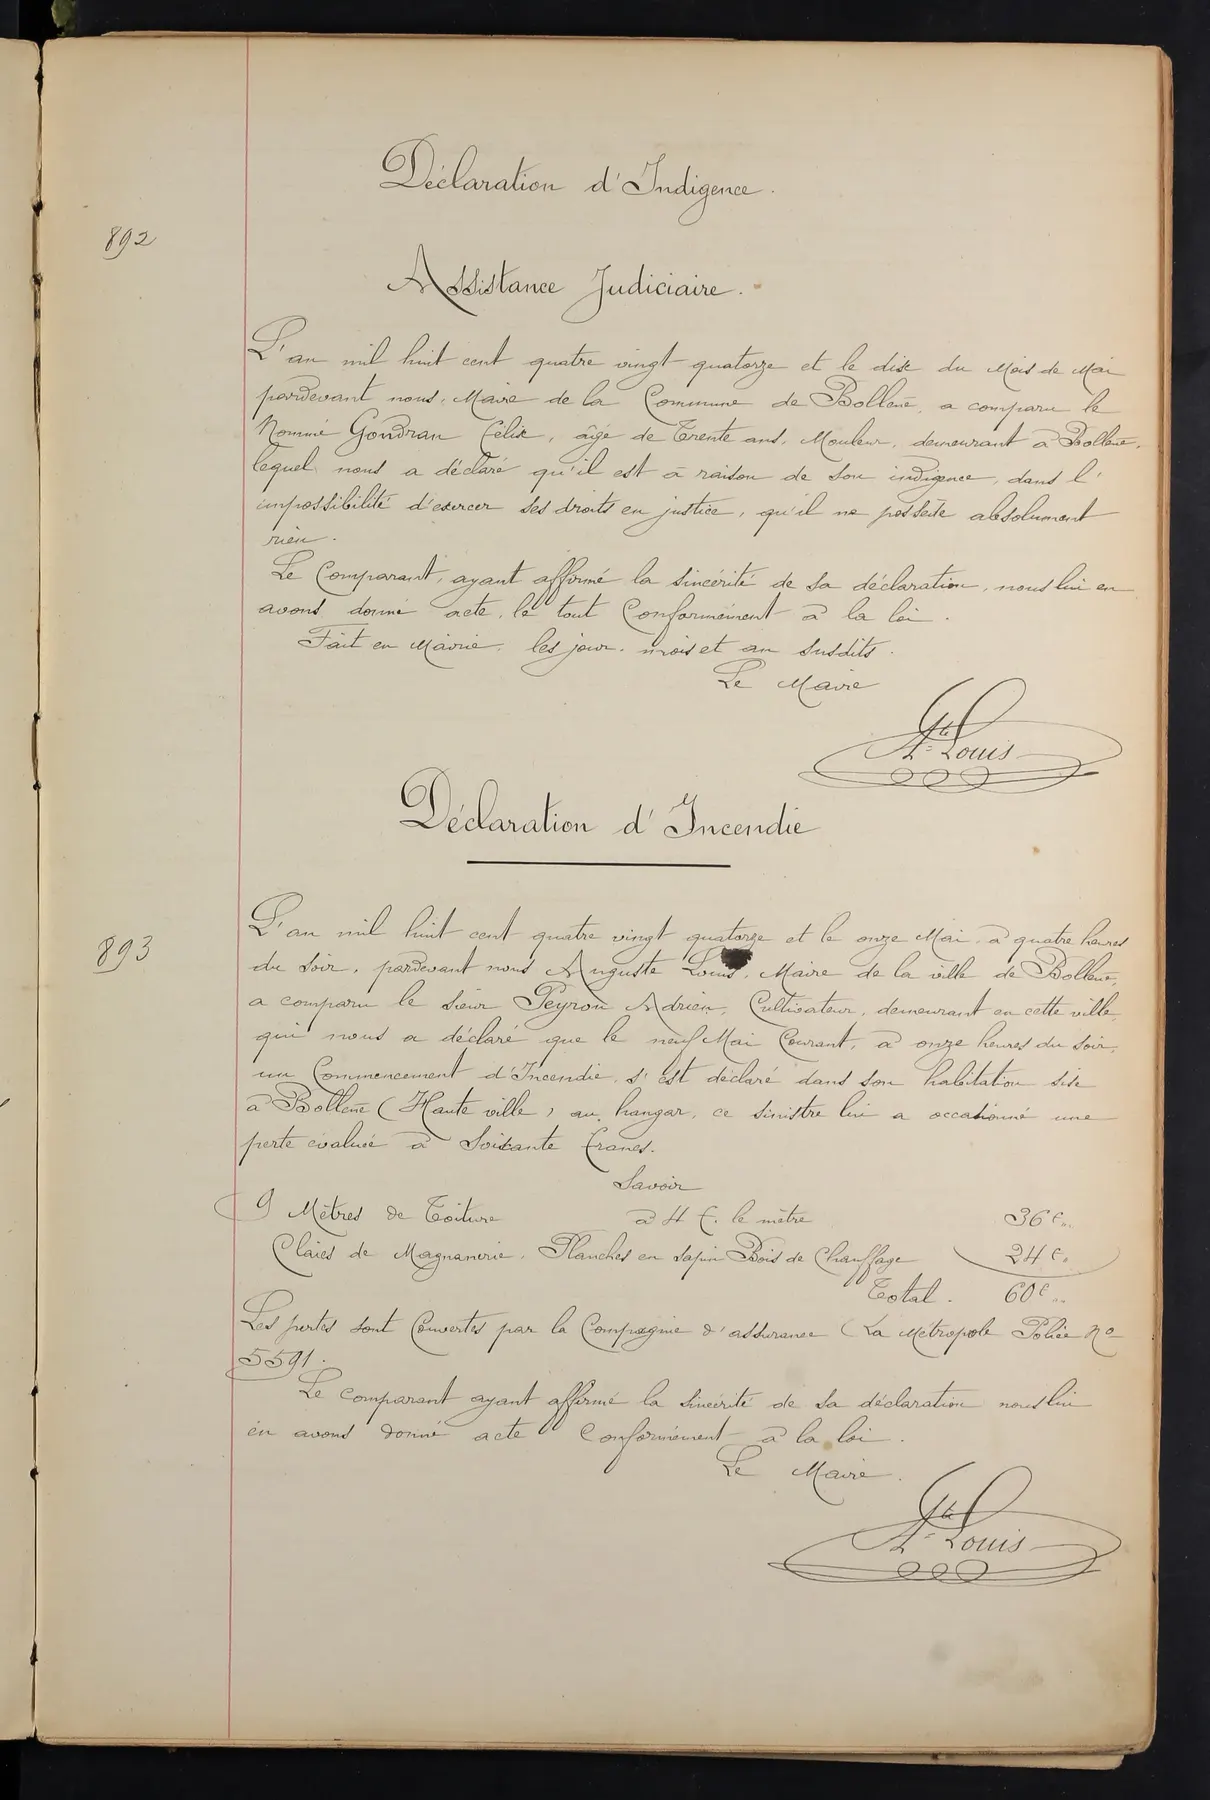 Déclaration d'Indigence.
892
Assistance Judiciaire.
L'an mil huit cent quatre vingt quatorze et le dix du Mois de Mai
pardevant nous, Maire de la Commune de Bollène, a comparu le
Nommé Gondran Félix, âgé de Trente ans, Mouleur, demeurant à Bollène,
lequel nous a déclaré qu'il est à raison de son indigence, dans l'
impossibilité d'exercer ses droits en justice, qu'il ne possède absolument
rien.
Le Comparant, ayant affirmé la sincérité de sa déclaration, nous lui en
avons donné acte, le tout Conformément à la loi.
Fait en Mairie, les jour, mois et an susdits.
Le Maire
Louis
Déclaration d'Incendie
893
L'an mil huit cent quatre vingt quatorze et le onze Mai, à quatre heures
du soir, pardevant nous Auguste Louis, Maire de la ville de Bollène,
a comparu le sieur Peyron Adrien, Cultivateur, demeurant en cette ville,
qui nous a déclaré que le neuf Mai Courant, à onze heures du soir,
un Commencement d'Incendie, s'est déclaré dans son habitation sise
à Bollène (Haute ville) au hangar, ce sinistre lui a occasionné une
perte évaluée à Soixante francs.
Savoir
9 Mètres de Toiture à 4 f. le mètre 36 f.
Claies de Magnanerie, Planches en sapin Bois de Chauffage 24 f.
Total. 60 f.
Les pertes sont Couvertes par la Compagnie d'assurance (La Métropole Police No
5591.
Le comparant ayant affirmé la sincérité de sa déclaration nous lui
en avons donné acte Conformément à la loi.
Le Maire.
Louis